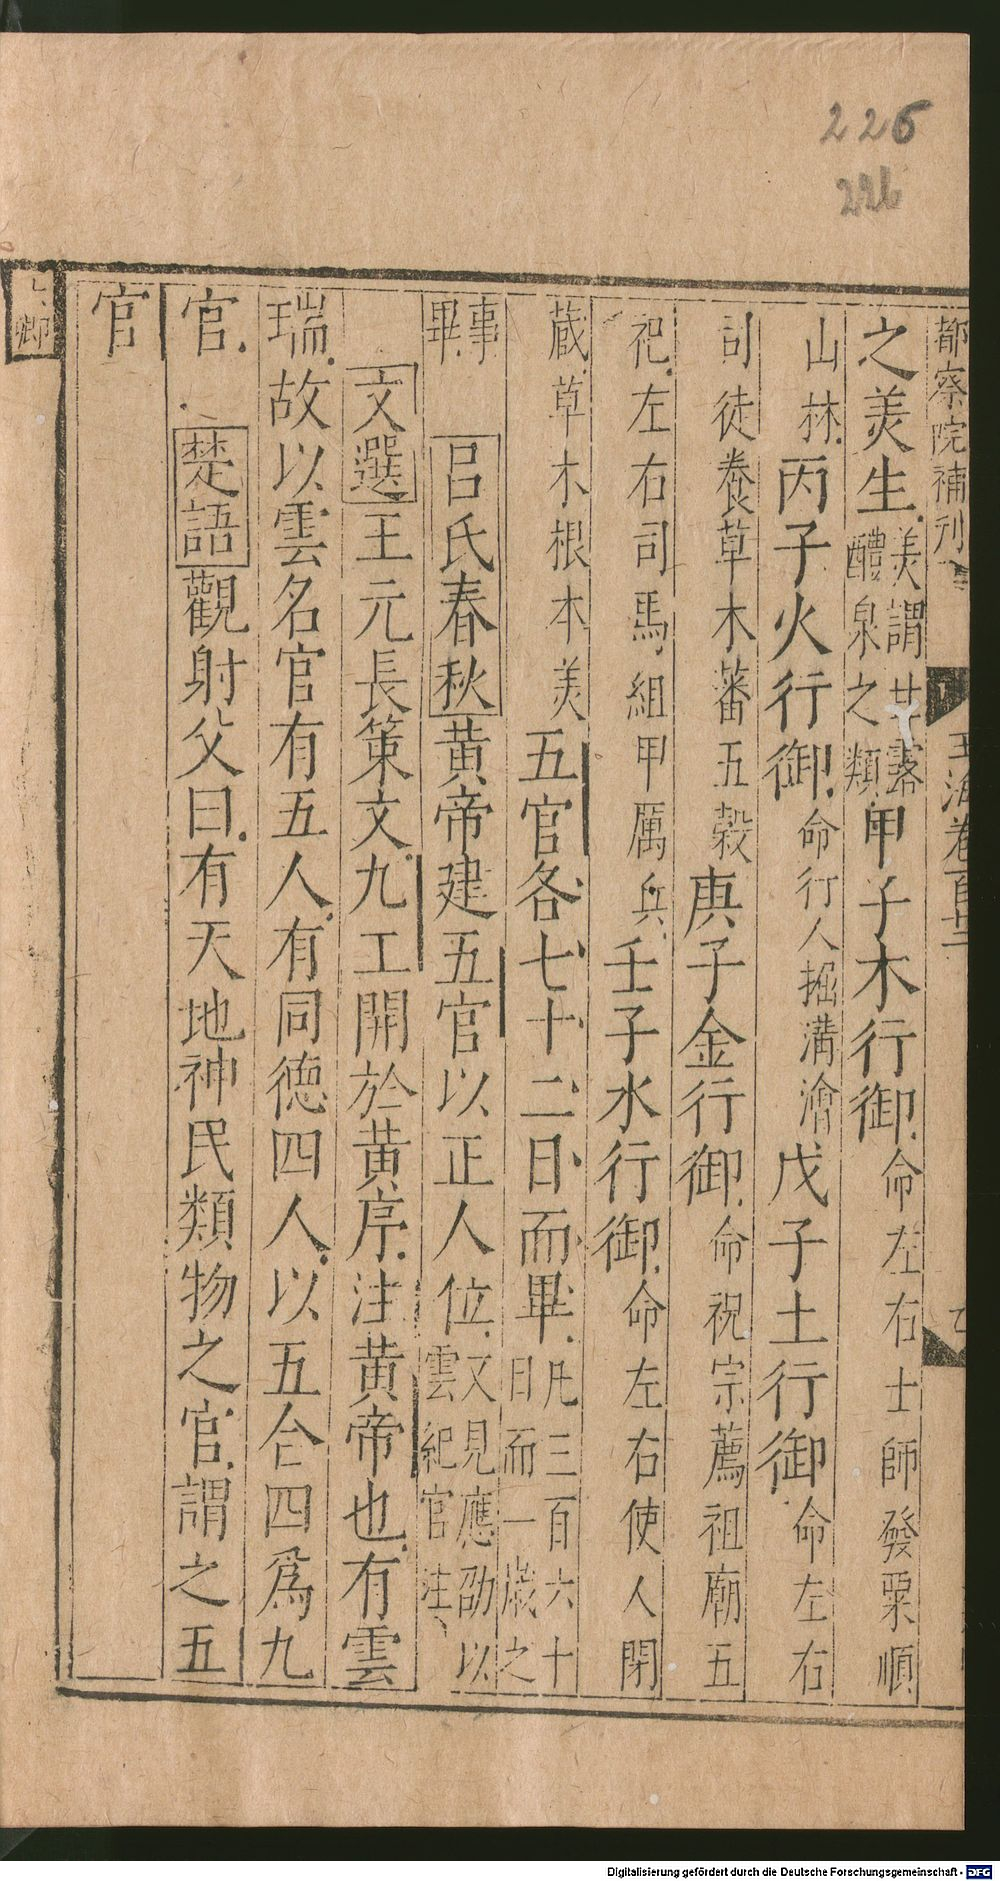 226
226
都察院補刊
玉海卷百
之美生美謂甘露醴泉之類甲子木行御命左右士師發粟順
山林丙子火行御命行人掘溝澮戊子土行御命左右
司徒養草木蕃五穀庚子金行御命祝宗薦祖廟五
祀左右司馬組甲厲兵壬子水行御命左右使人閉
蔵草木根本美五官各七十二日而畢凡三百六十日而一歳之
事畢吕氏春秋黄帝建五官以正人位文見應劭以雲紀官注
文選王元長策文九工開於黄序注黄帝也有雲
瑞故以雲名官有五人有同德四人以五合四爲九
官楚語觀射父曰有天地神民類物之官謂之五
官
六卿
Digitalisierung gefördert durch die Deutsche Forschungsgemeinschaft - DFG